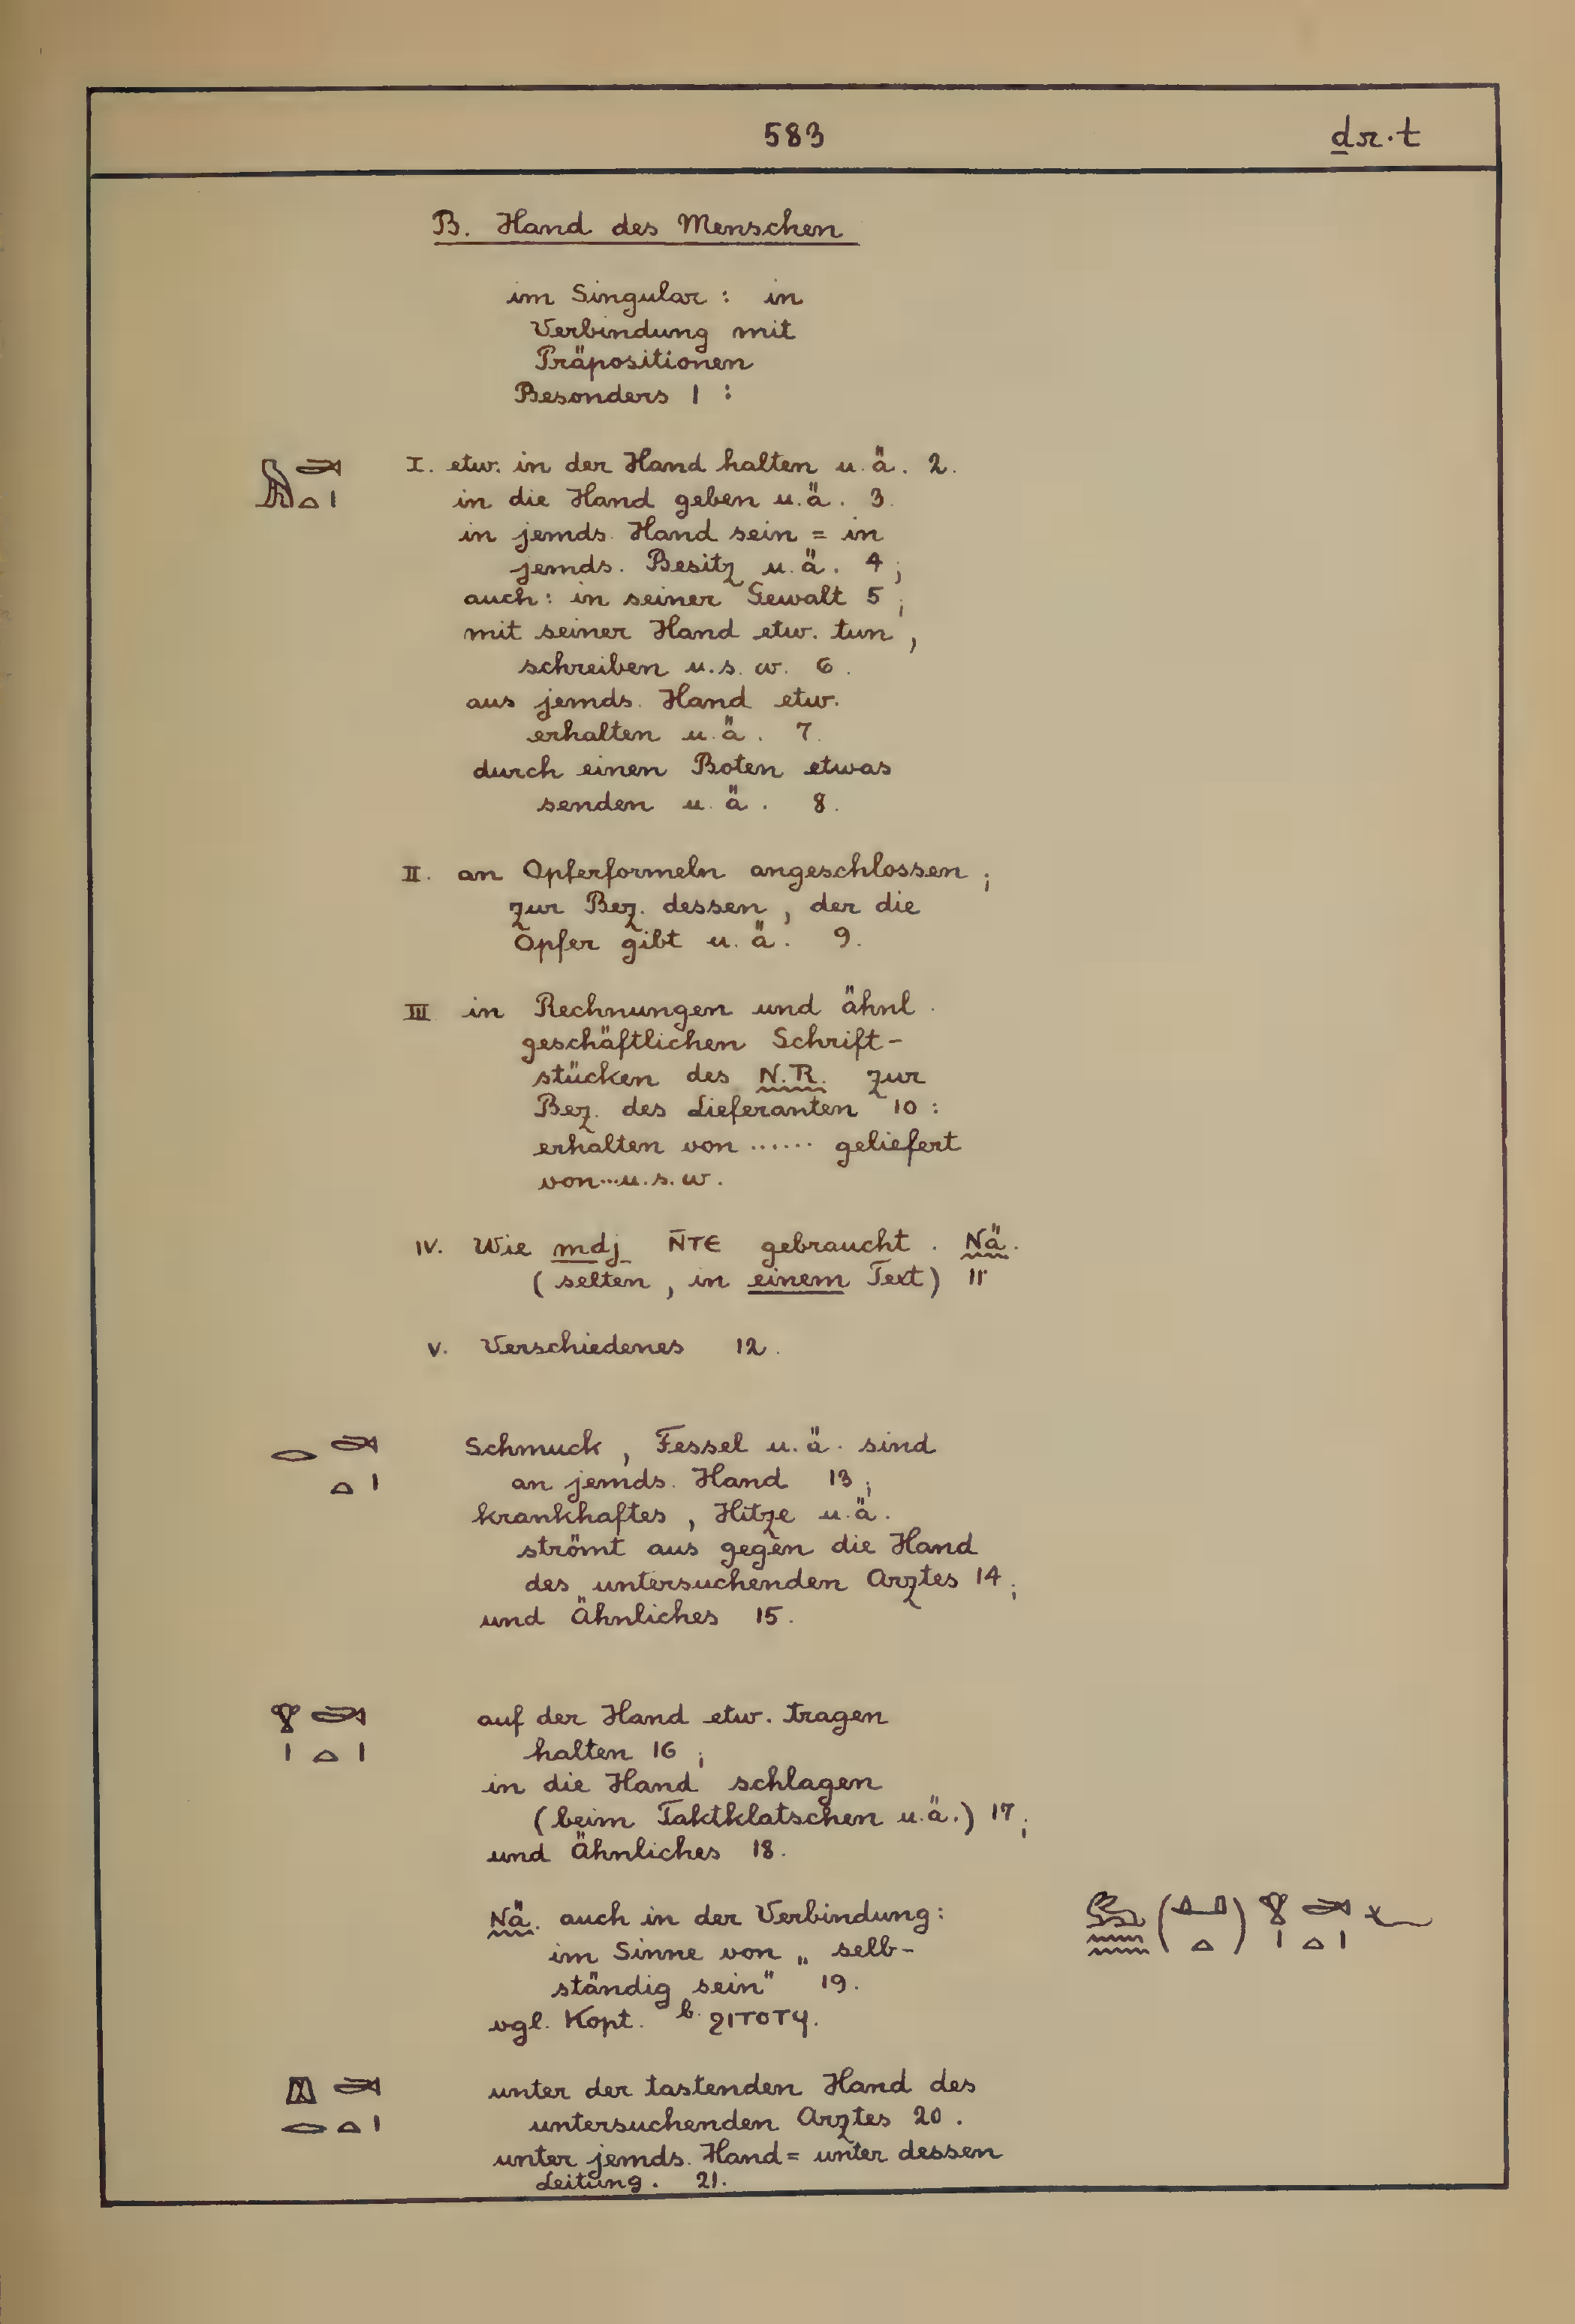 583 ḏr·t
B. Hand des Menschen
im Singular : in
Verbindung mit
Präpositionen
Besonders 1 :
𓅓 𓂧 𓏏 𓏤 I. etw. in der Hand halten u. ä. 2.
in die Hand geben u. ä. 3.
in jemds. Hand sein = in
jemds. Besitz u. ä. 4 ;
auch : in seiner Gewalt 5 ;
mit seiner Hand etw. tun ,
schreiben u. s. w. 6.
aus jemds. Hand etw.
erhalten u. ä. 7.
durch einen Boten etwas
senden u. ä. 8.
II. an Opferformeln angeschlossen ;
zur Bez. dessen , der die
Opfer gibt u. ä. 9.
III in Rechnungen und ähnl.
geschäftlichen Schrift-
stücken des N.R. zur
Bez. des Lieferanten 10 :
erhalten von ...... geliefert
von ... u. s. w.
IV. Wie mdj N̄TE gebraucht . Nä.
( selten , in einem Text ) 11
V. Verschiedenes 12.
𓂋 𓂧 𓏏 𓏤 Schmuck , Fessel u. ä. sind
an jemds. Hand 13 ;
krankhaftes , Hitze u. ä.
strömt aus gegen die Hand
des untersuchenden Arztes 14 ;
und Ähnliches 15.
𓁷 𓏤 𓂧 𓏏 𓏤 auf der Hand etw. tragen
halten 16 ;
in die Hand schlagen
( beim Taktklatschen u. ä. ) 17 ;
und Ähnliches 18.
Nä. auch in der Verbindung :
im Sinne von „ selb-
ständig sein" 19.
vgl. Kopt. b. ϩΙΤΟΤϤ.
unter der tastenden Hand des
untersuchenden Arztes 20 .
unter jemds. Hand = unter dessen
Leitung . 21.